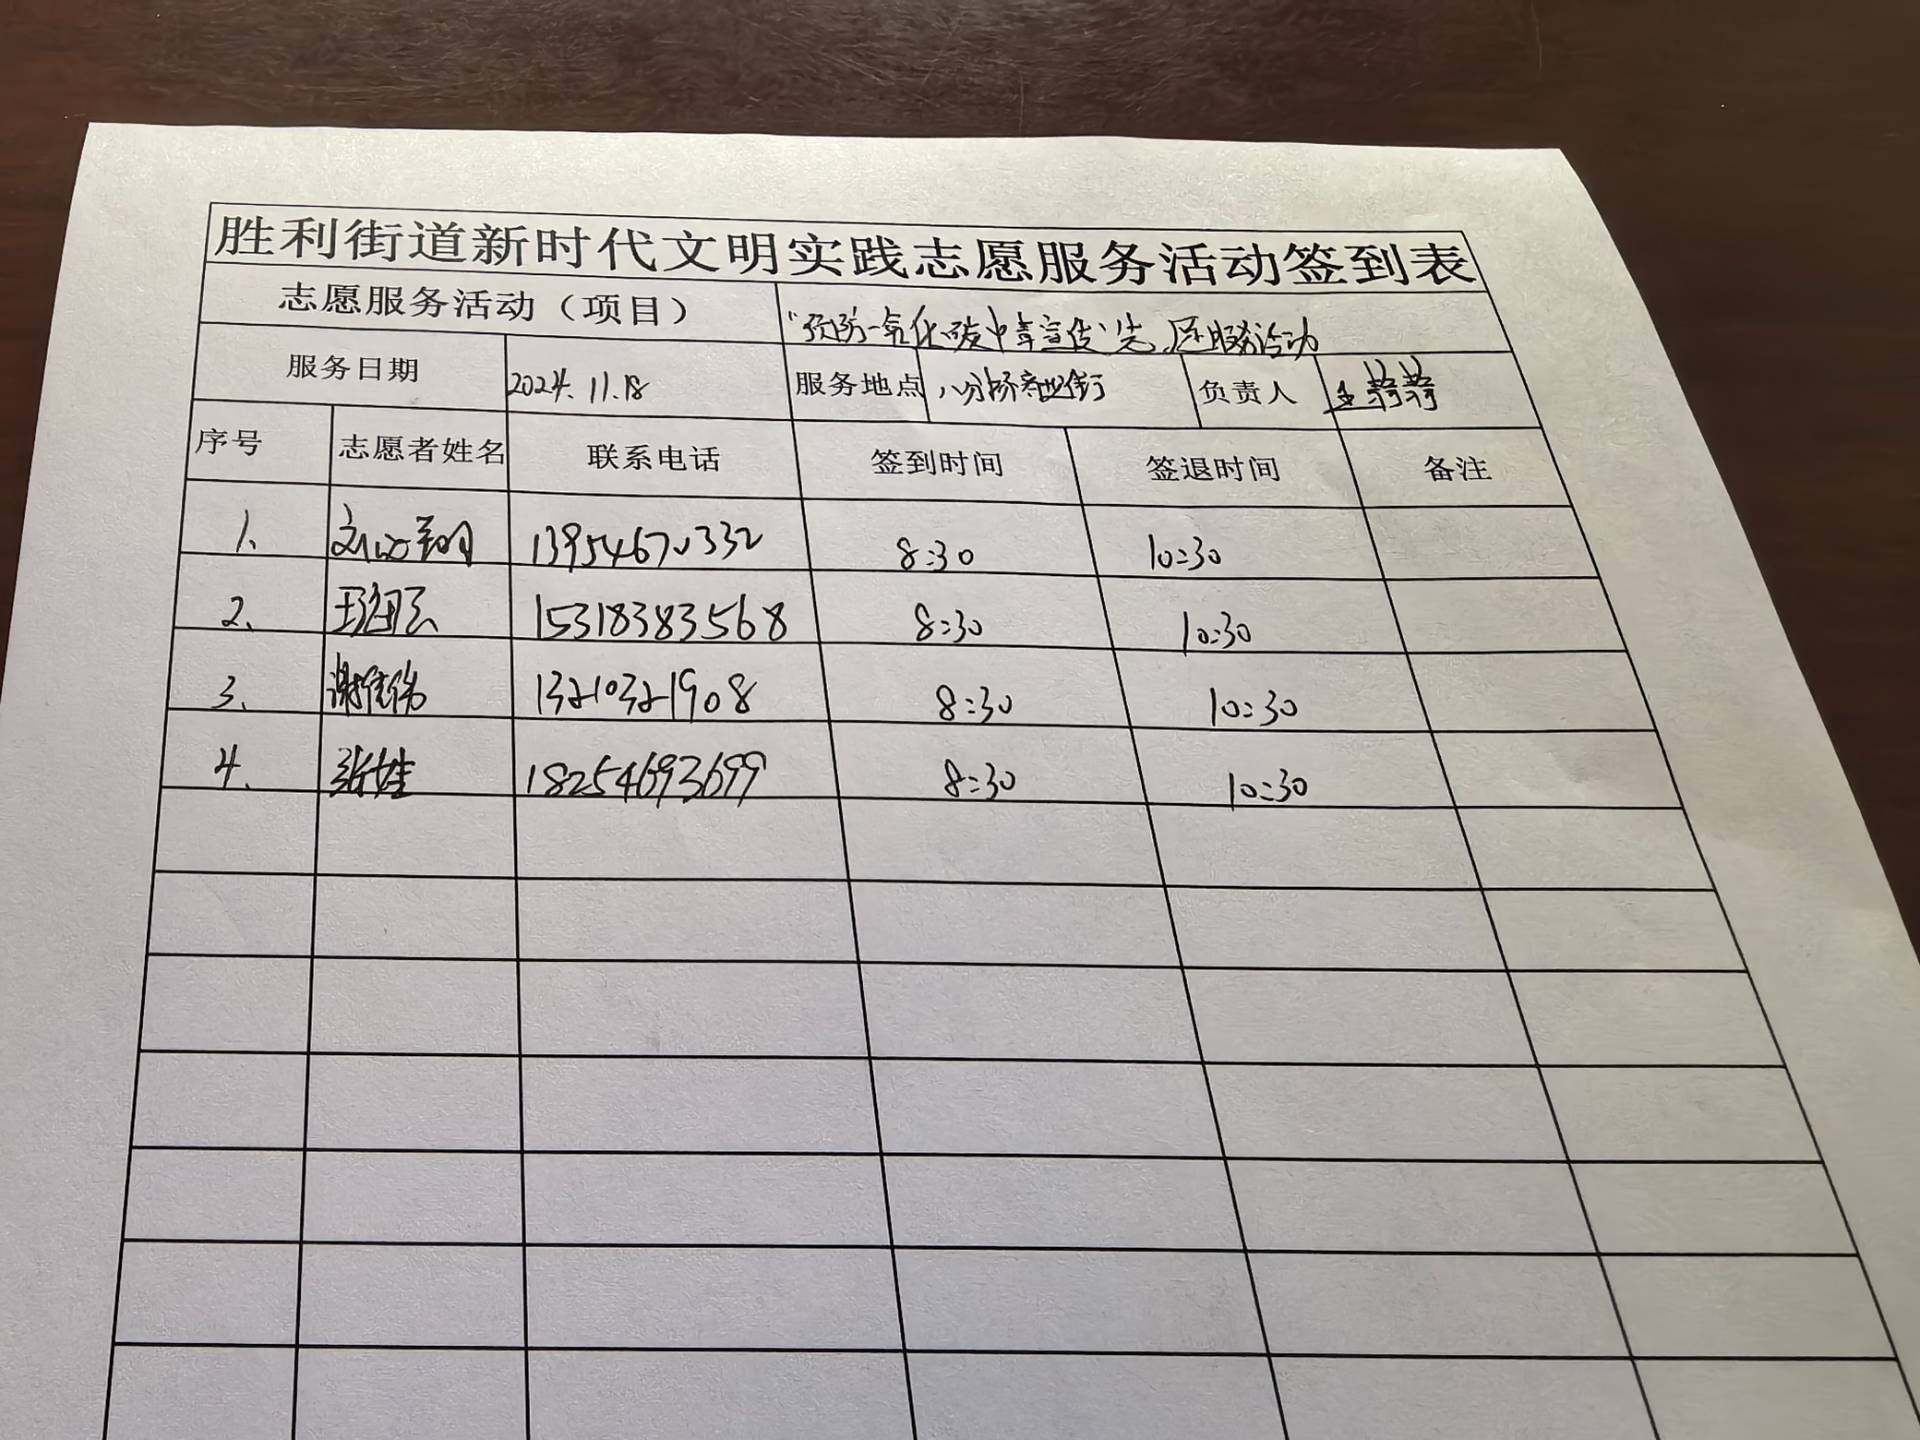 胜利街道新时代文明实践志愿服务活动签到表
志愿服务活动（项目） “预防一氧化碳中毒宣传”志愿服务活动
服务日期 2024.11.18 服务地点 八分场商业街 负责人 王莉莉
序号 志愿者姓名 联系电话 签到时间 签退时间 备注
1、 13954670332 8:30 10:30
2、 15318383568 8:30 10:30
3、 13210321908 8:30 10:30
4、 18254693699 8:30 10:30